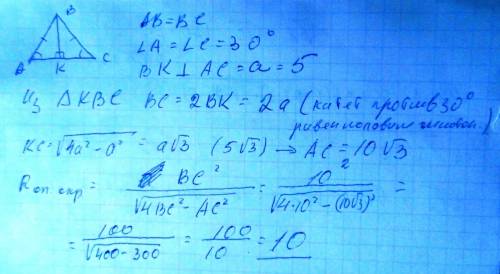 B
A K C
AB = BC
∠A = ∠C = 30°
BK ⊥ AC = a = 5
Из ΔKBC BC = 2BK = 2a (катет против 30°
равен половине гипотен.)
KC = √4a² - a² = a√3 (5√3) → AC = 10√3
Rоп. окр = BC² / √4BC² - AC² = 10² / √4·10² - (10√3)² =
= 100 / √400 - 300 = 100 / 10 = 10